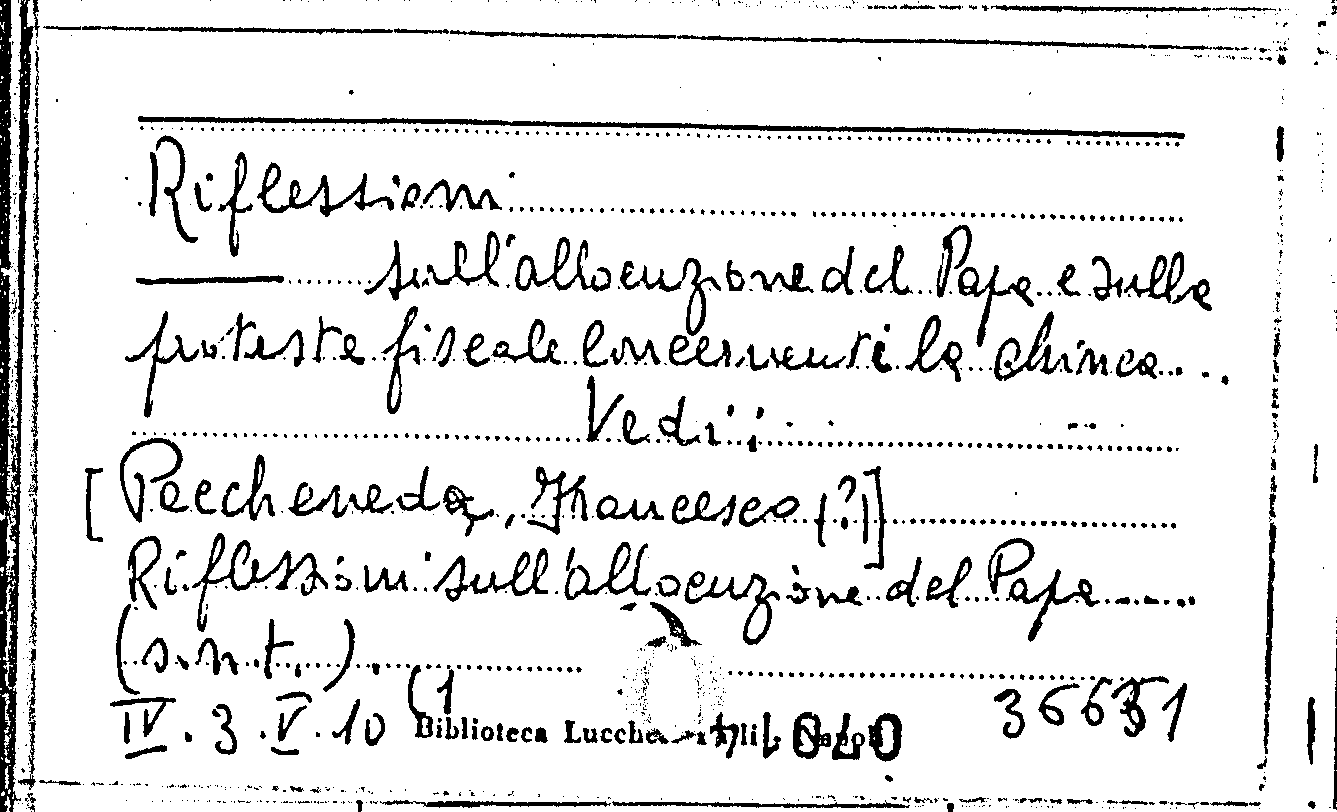 Riflessioni
sull'allocuzione del Papa e sulla
proteste fiscale concernenti la chinea...
Vedi:
[Peccheneda, Francesco (?)]
Riflessioni sull'allocuzione del Papa.....
(s.n.t.).
IV.3.V.10 (1
Biblioteca Lucchesi Palli - Napoli